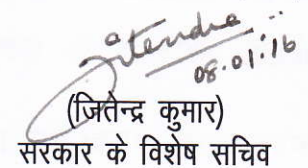 Jitendra
08.01.16
(जितेन्द्र कुमार)
सरकार के विशेष सचिव